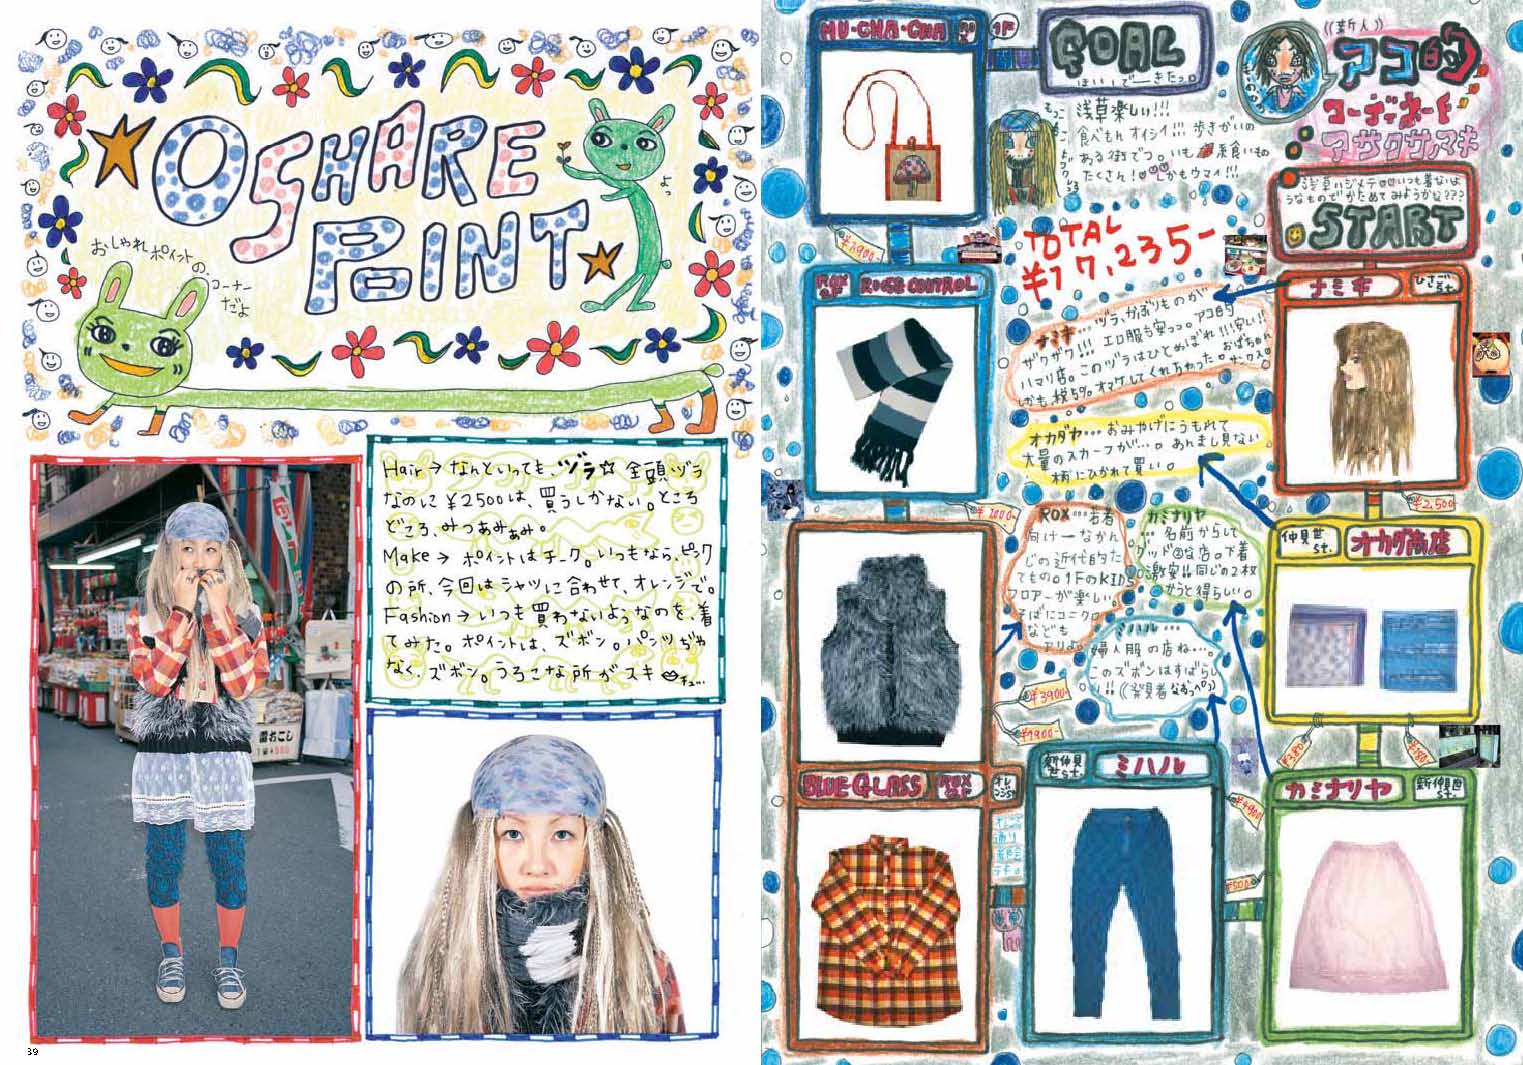 OSHARE
POINT
よっ
おしゃれポイントの、
コーナー
だよ
Hair→なんといっても、ヅラ☆金頭ヅラ
なのに¥2500は、買うしかない。ところ
どころ、みつあみあみ。
Make→ポイントはチーク。いつもなら、ピンク
の所、今回はシャツに合わせて、オレンジで。
Fashion→いつも買わないようなのを、着
てみた。ポイントは、ズボン。パンツぢゃ
なく、ズボン。うろこな所がスキ チュ…
雷おこし
39
MU・CHA・CHA
1F
GOAL
((新人))
アコ的
コーディネート
アサクサマキ
浅草楽しい!!!
食べもんオイシイ!!! 歩きがいの
ある街でつ。いも
たくさん!
かもウマイ!!!
START
TOTAL
¥17,235-
ROX
ROSE CONTROL
ナミキ
ひさご
st.
ナミキ…ヅラ、かぶりものが
ザクザク!!! エロ服も安っっ。アコ的
ハマリ店。このヅラはひとめぼれ!!!安い!!
しかも税5%オマケしてくれちゃった。
オカダヤ…おみやげにうもれて
大量のスカーフが…。あんまし見ない
柄にひかれて買い。
¥2,500
¥1000-
ROX…若者
向けーなかん
じの近代的た
てもの。1FのKIDS
フロアーが楽しい。
そばにユニクロ
なども
アリよ。
カミナリヤ
…名前からして
グッドな店。下着
激安!!同じの2枚
かうと得らしい。
仲見世
st.
オカダ商店
ミハル…
婦人服の店ね…。
このズボンはすばらし
い!!
¥3900-
¥1900-
¥380-
¥180-
BLUE GLASS
ROX
新仲見
世st.
ミハル
カミナリヤ
新仲見世
st.
¥4900
¥500